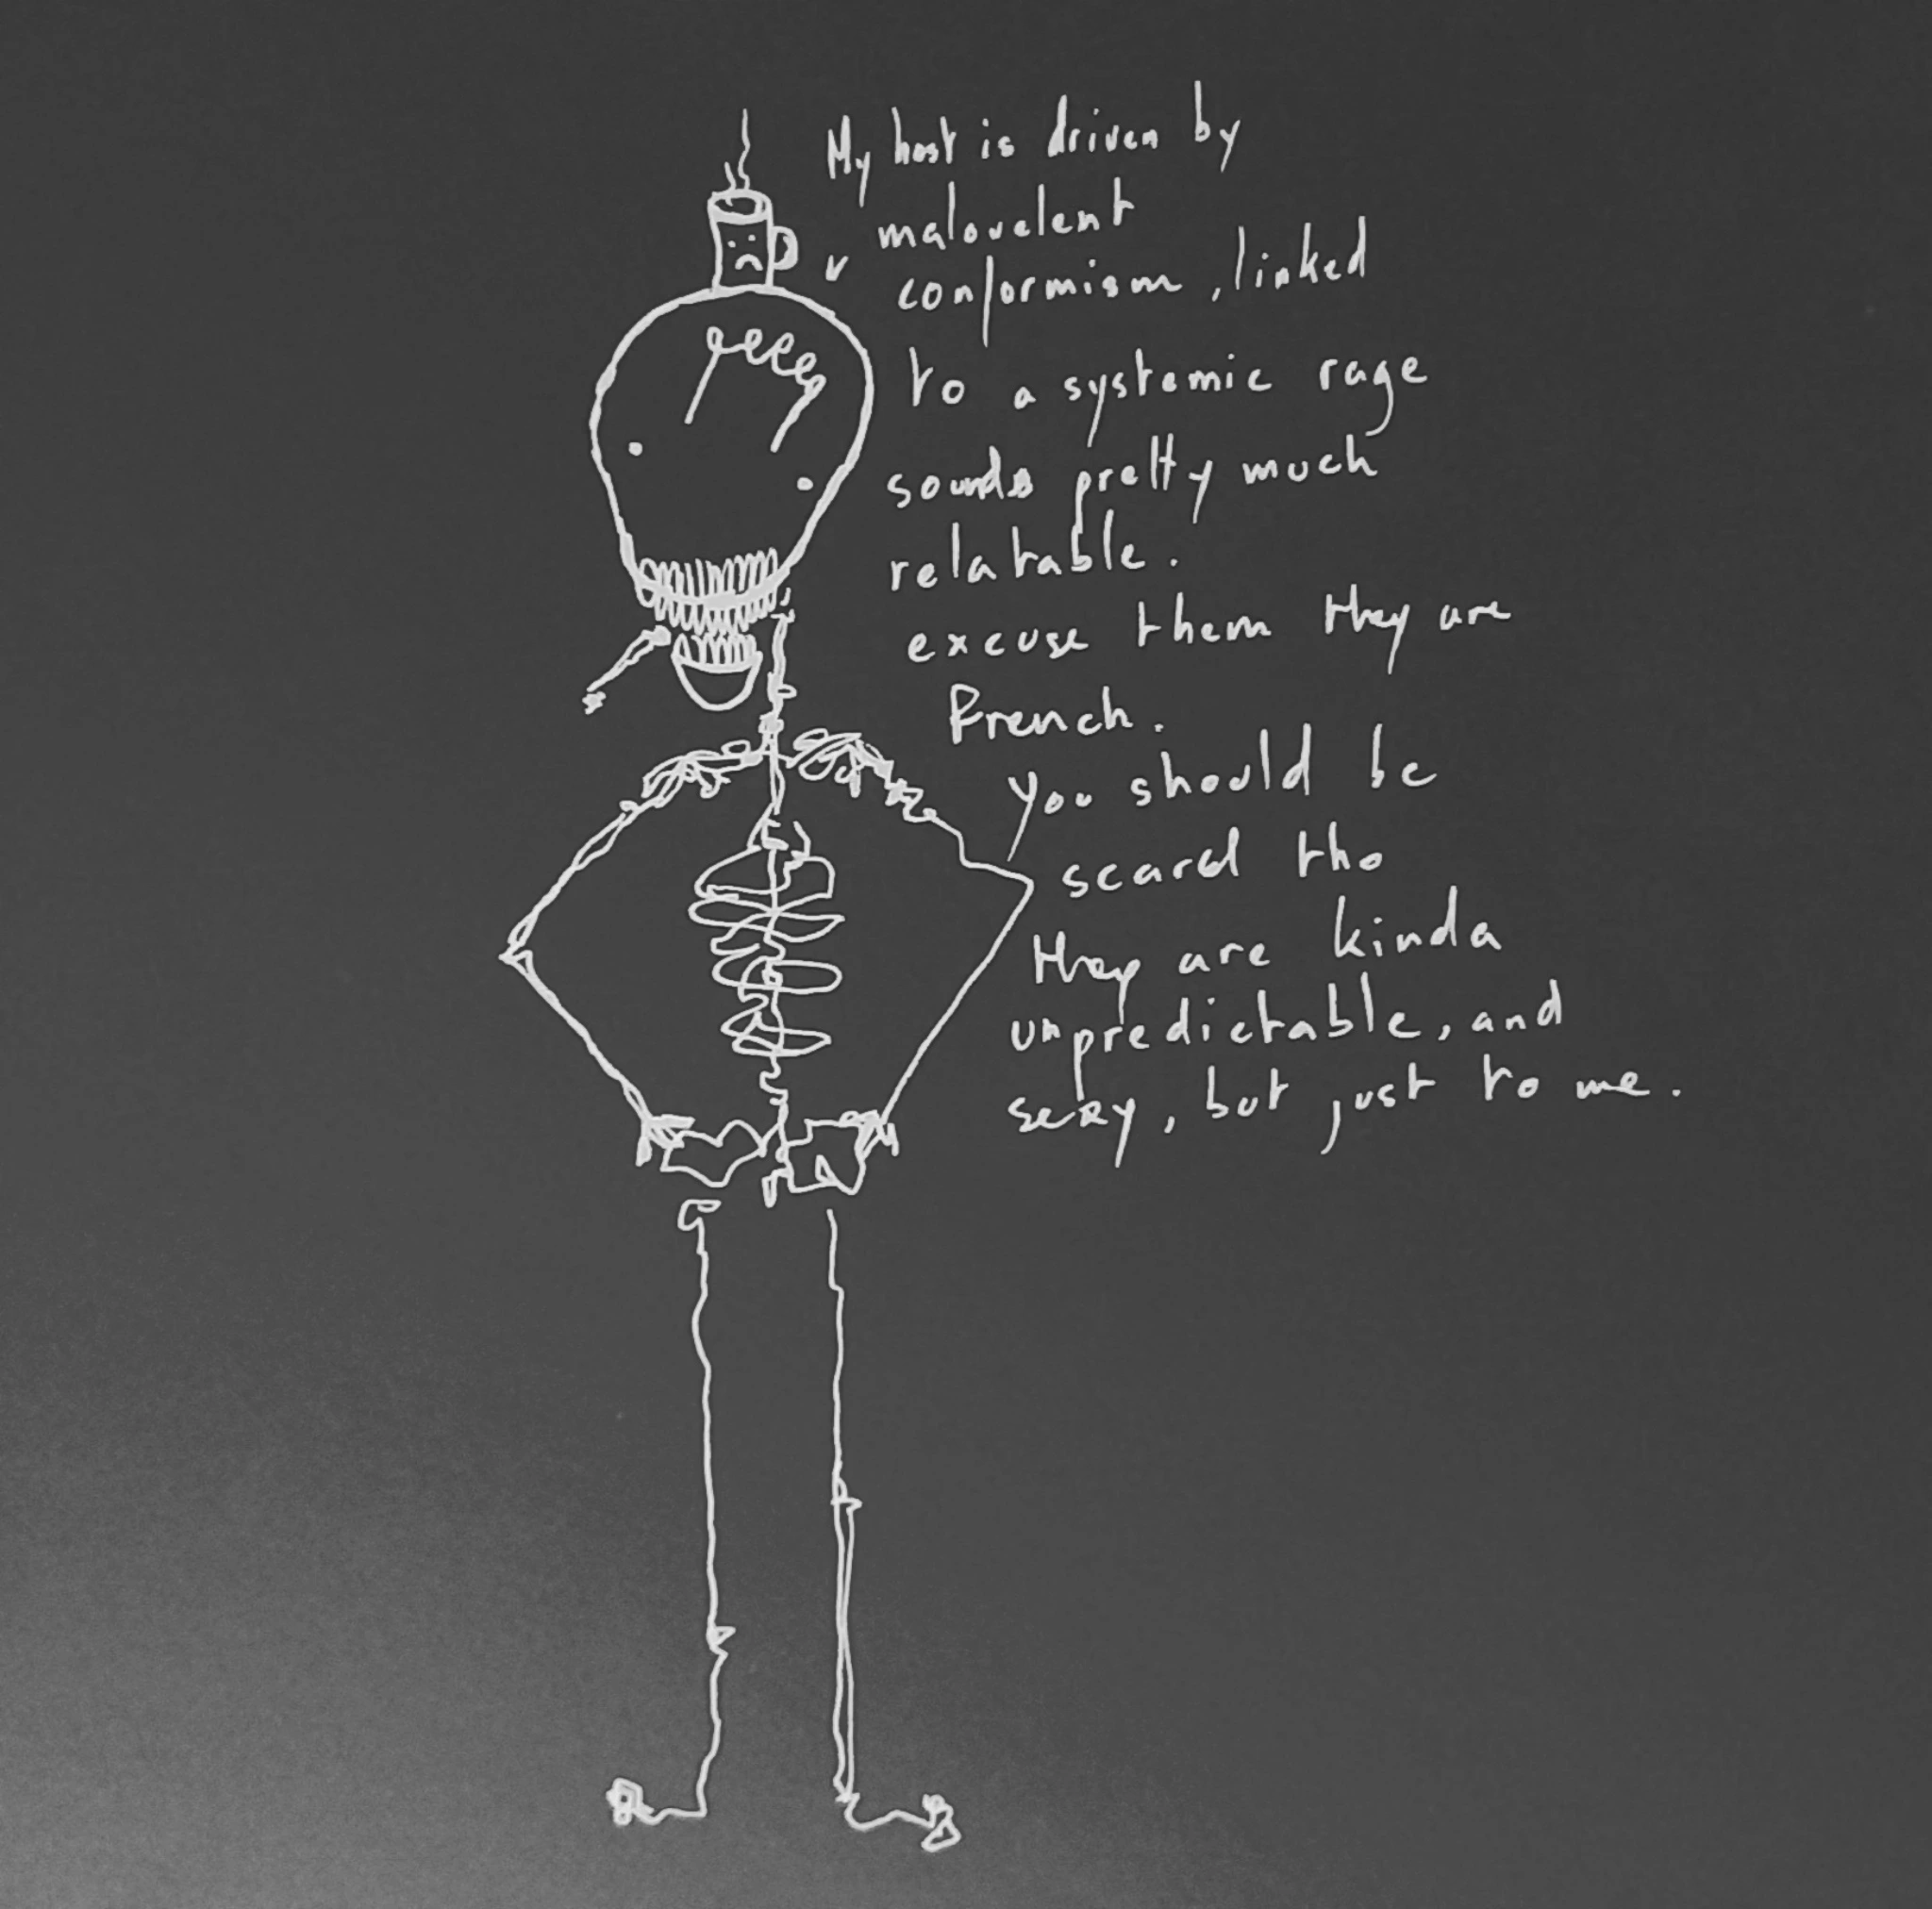 My host is driven by
malovelent
conformism, linked
to a systemic rage
sounds pretty much
relatable.
excuse them they are
French.
you should be
scared tho
they are kinda
unpredictable, and
sexy, but just to me.